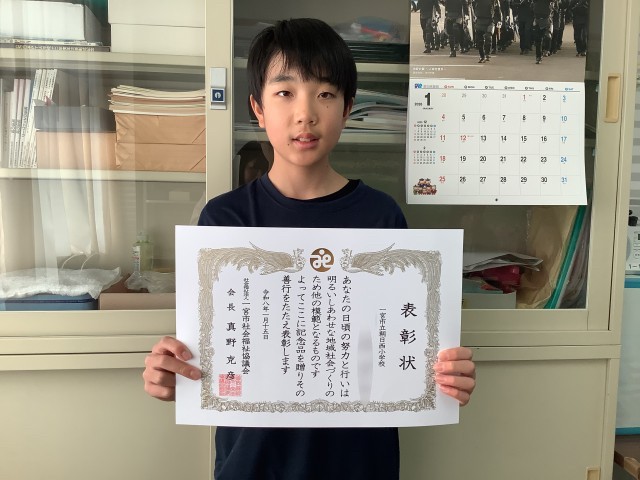 表彰状
一宮市立朝日西小学校
あなたの日頃の努力と行いは
明るいしあわせな地域社会づくりの
ため他の模範となるものです
よってここに記念品を贈りその
善行をたたえ表彰します
令和八年一月十五日
社会福祉法人 一宮市社会福祉協議会
会長 真野克彦
1
4 5 6 7 8 9 10
11 12 13 14 15 16 17
18 19 20 21 22 23 24
25 26 27 28 29 30 31